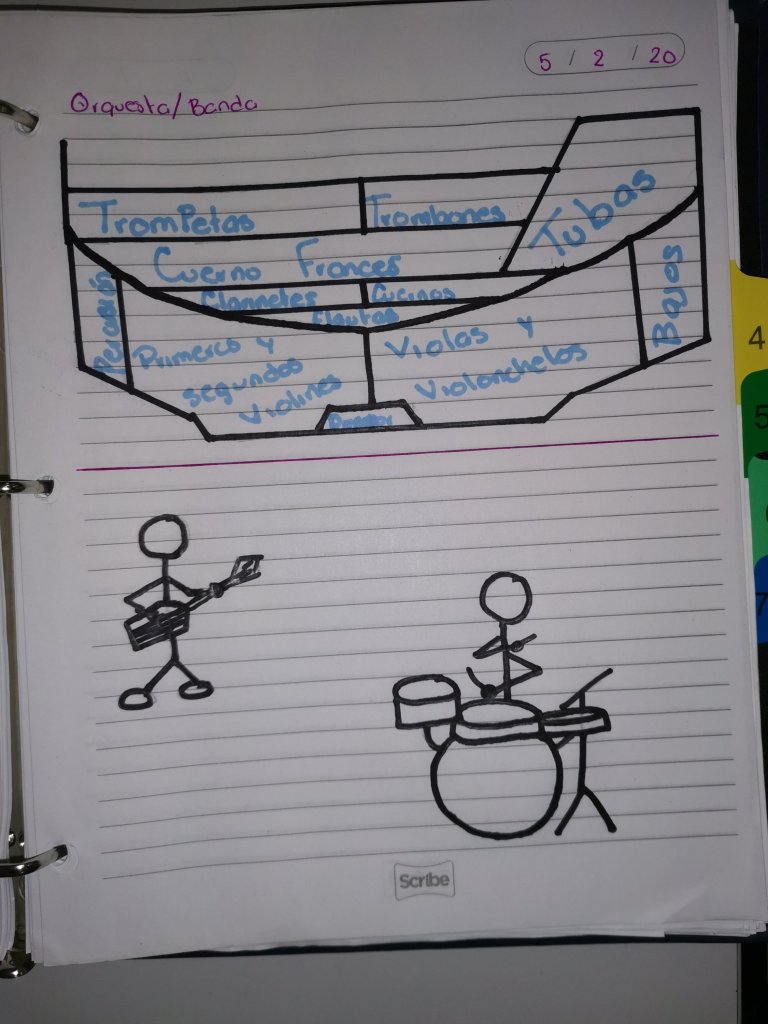 5 / 2 / 20
Orquesta/Banda
Trompetas
Trombones
Tubas
Cuerno Frances
Percusión
Clarinetes
Flautas
Bajos
Primeros y
segundos
Violines
Violas y
Violonchelos
Scribe
4
5
7